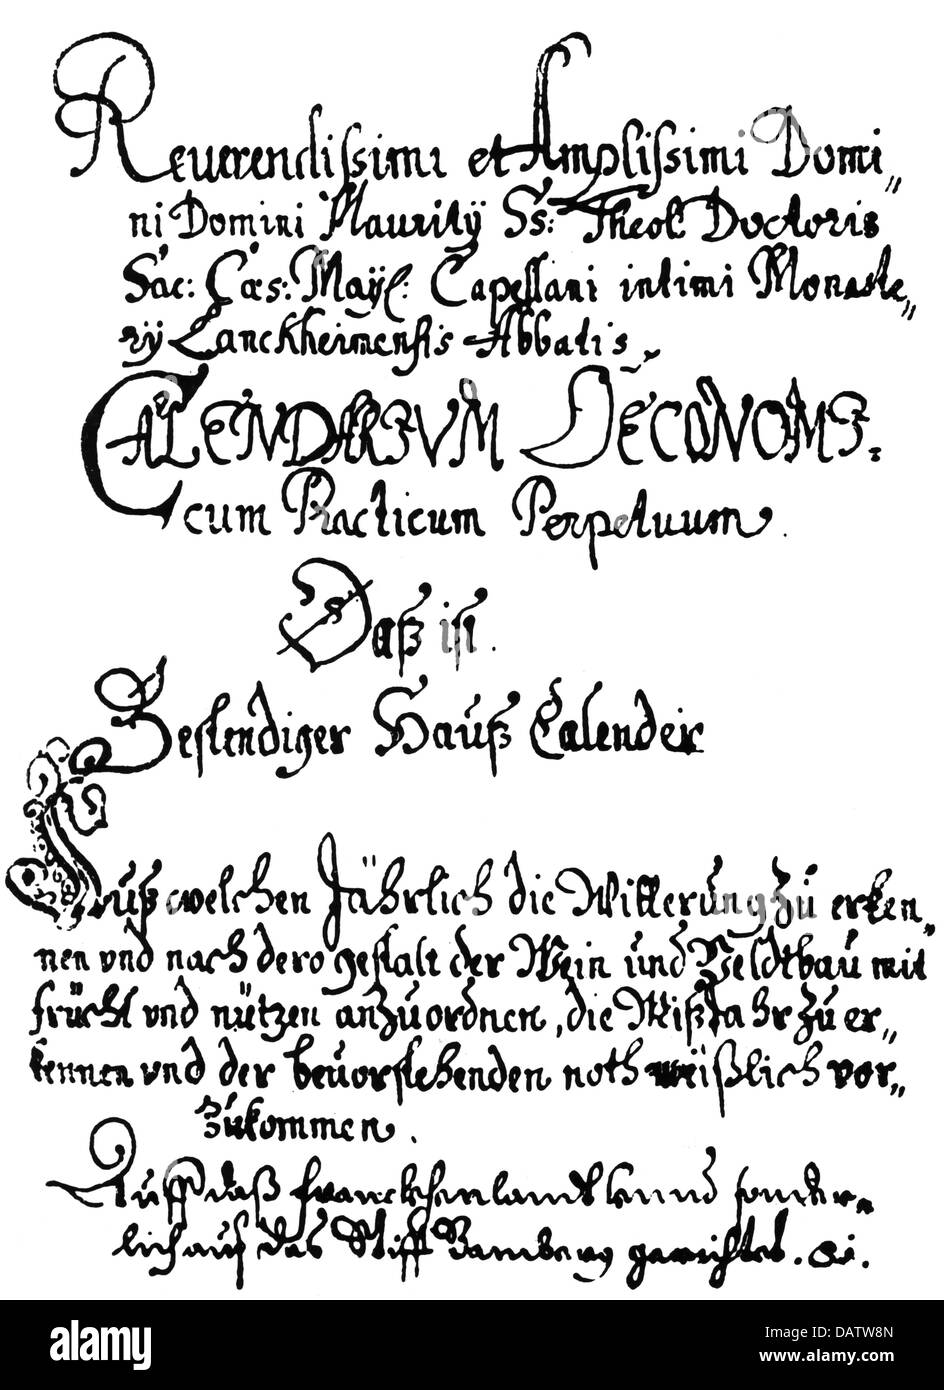 Reverendissimi et Amplissimi Domi„
ni Domini Mauritÿ Ss: Theol: Doctoris
Sac: Cæs: Maÿ: Capellani intimi Monaste„
rÿ Lanckheimensis Abbatis,
CALENDARIVM OECONOMI=
cum Practicum Perpetuum.
Daß ist.
Bestendiger Hauß Calender
Auß welchen Jährlich die Witterung zu erken„
nen vnd nach dero gestalt der Wein und Veldtbau mit
frücht vnd nützen anzuordnen, die Mißjahr zu er„
kennen vnd der bevorstehenden noth weißlich vor„
zukommen.
Auff daß Franckhenlandt vnnd sonder„
lich auf das Stifft Bamberg gerichtet. &.
alamy
Image ID: DATW8N
www.alamy.com